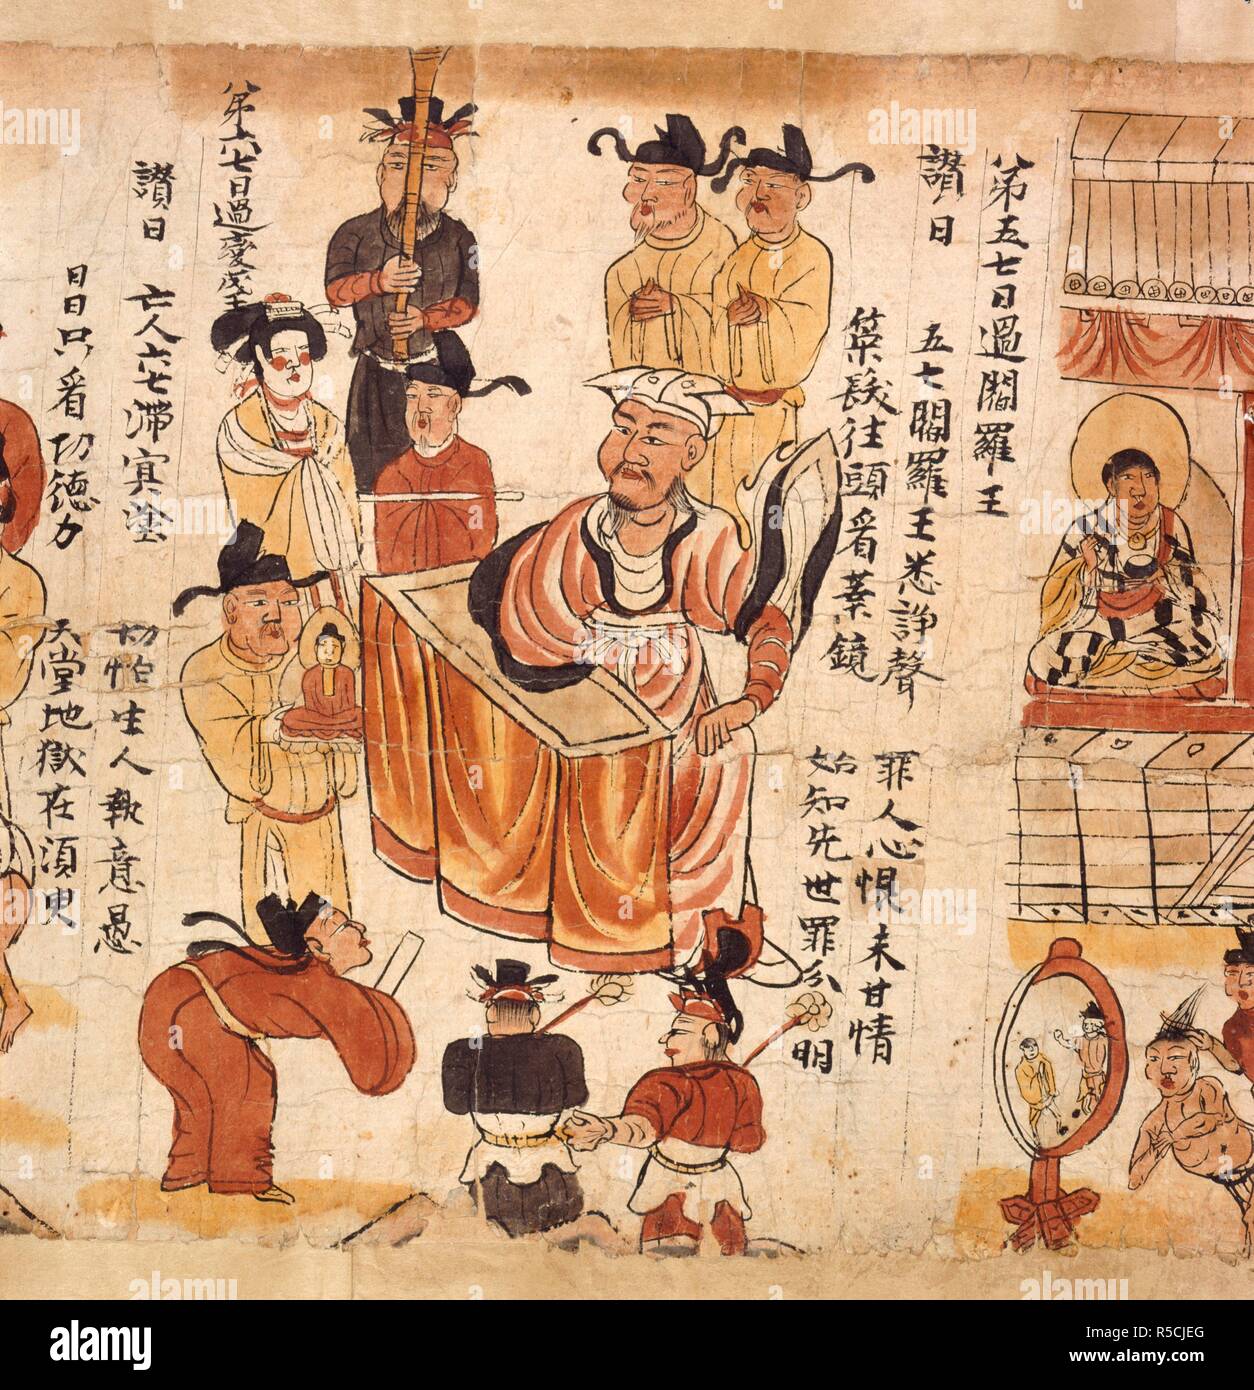 第五七日過閻羅王
讚曰 五七閻羅王悉諍聲 罪人心恨未甘情
策髮往頭看業鏡 始知先世罪分明
第六七日過變成王
讚曰 亡人六七滯冥塗 切怕生人執意愚
日日只看功德力 天堂地獄在湏臾
alamy
Image ID: R5CJEG
www.alamy.com